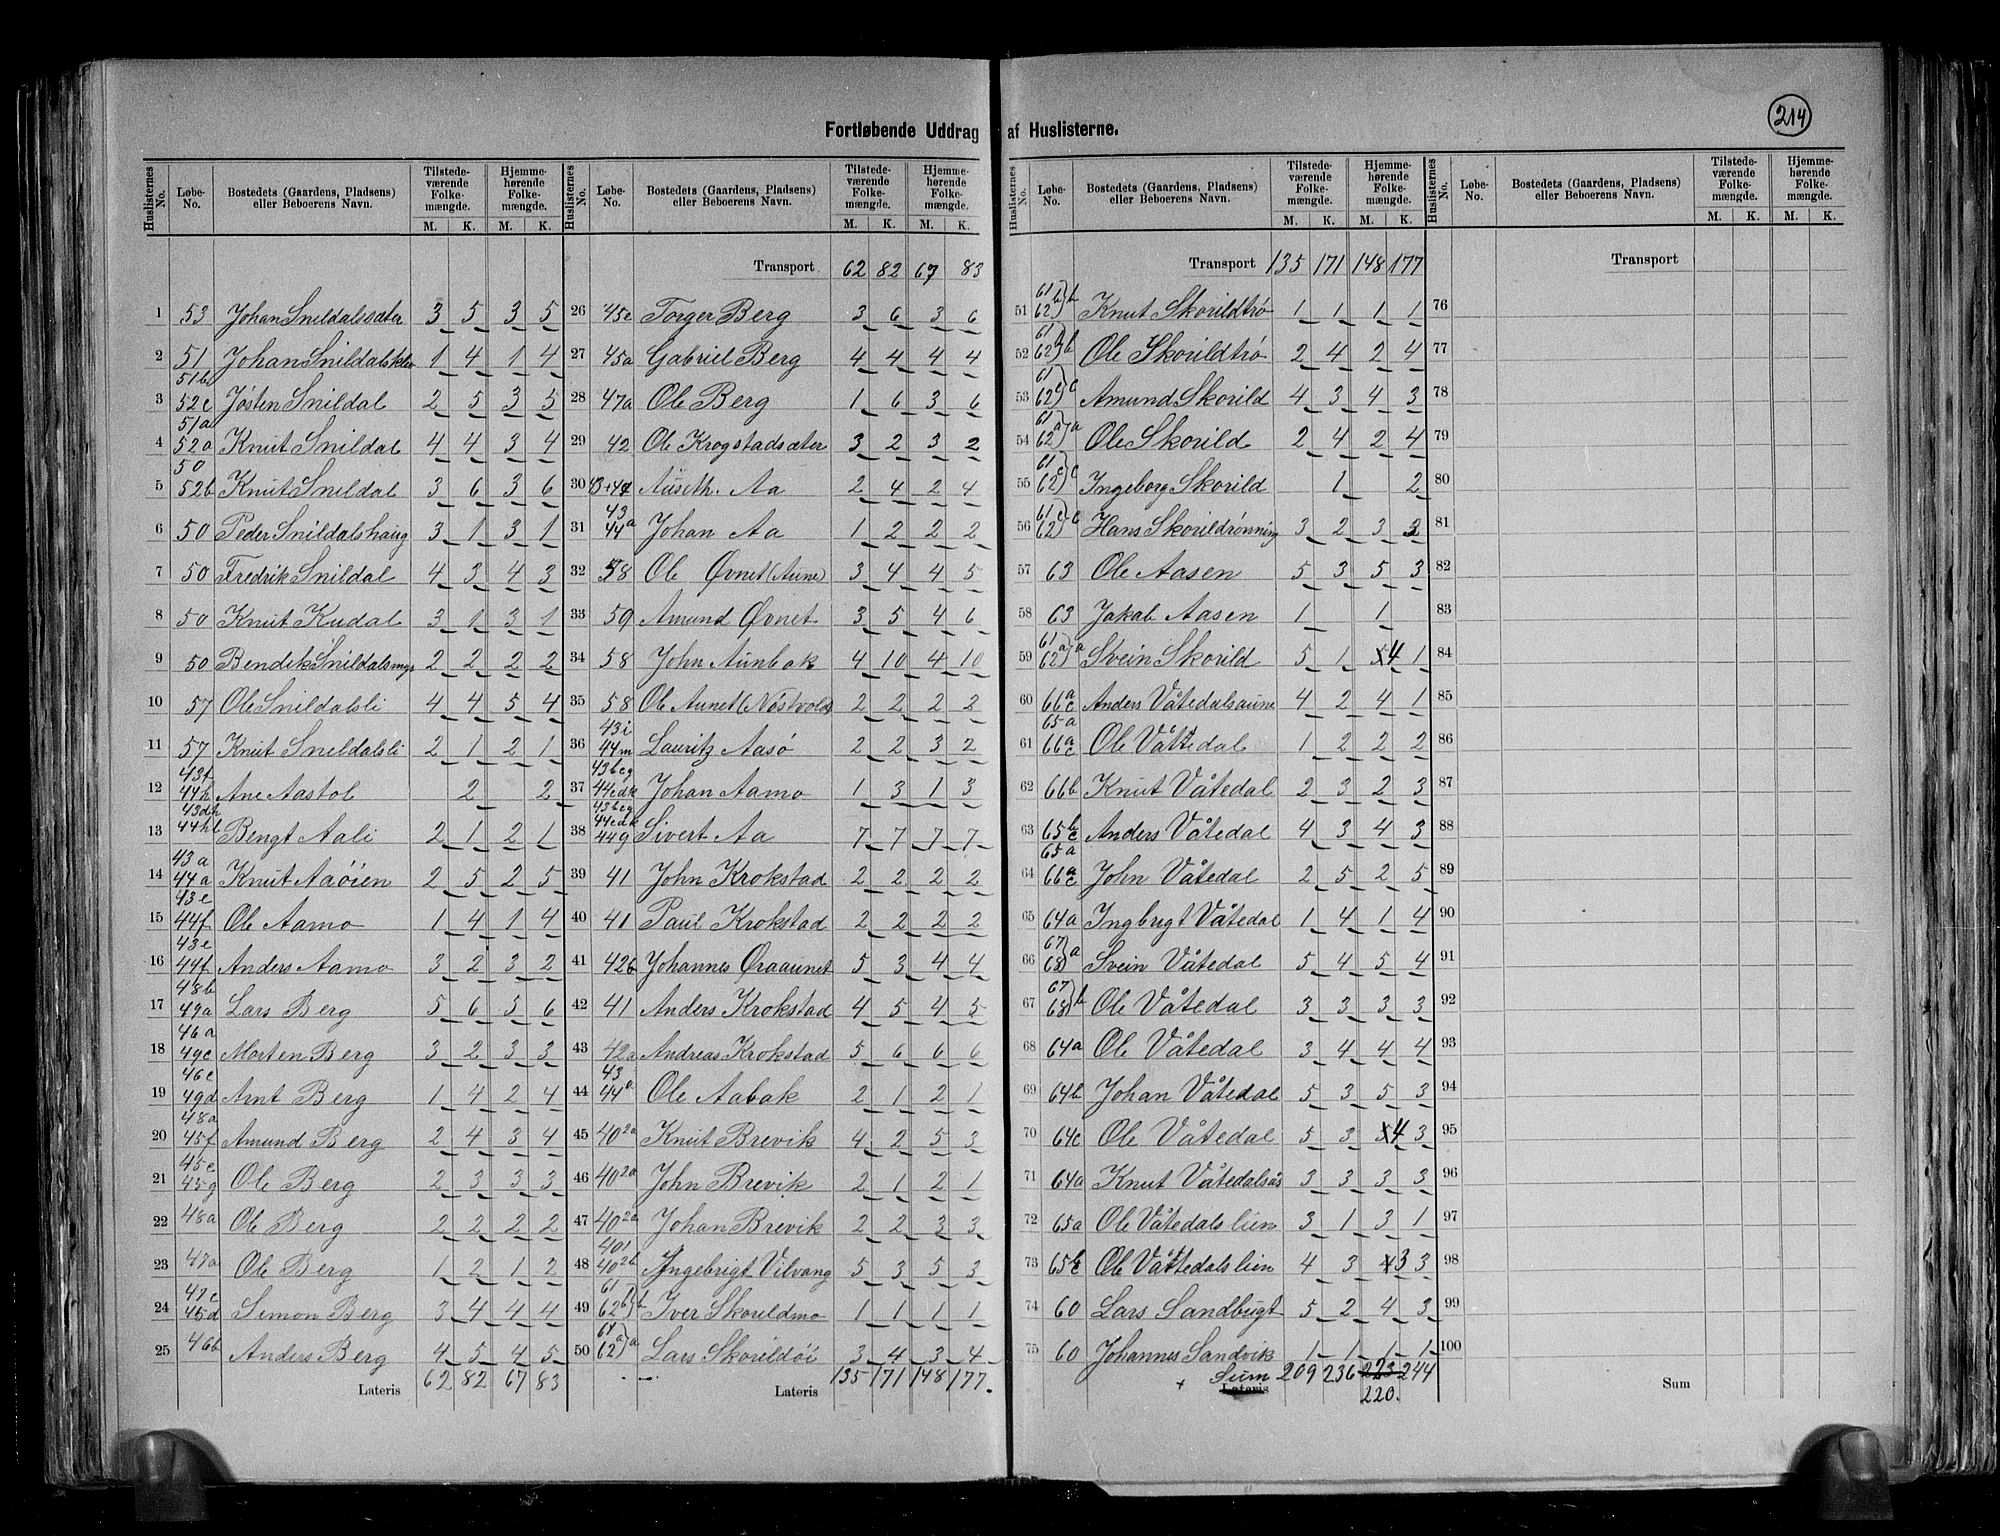 214
Fortløbende Uddrag af Huslisterne.
Huslisternes No. Løbe-No. Bostedets (Gaardens, Pladsens) eller Beboerens Navn. Tilstedeværende Folkemængde. M. K. Hjemmehørende Folkemængde. M. K.
1 53 Johan Snildalssæter 3 5 3 5
2 51 Johan Snildalsklev 1 4 1 4
3 51b 52c Jøsten Snildal 2 5 3 5
4 51a 52a Knut Snildal 4 4 3 4
5 50 52b Knut Snildal 3 6 3 6
6 50 Peder Snildalshaug 3 1 3 1
7 50 Fredrik Snildal 4 3 4 3
8 50 Knut Kudal 3 1 3 1
9 50 Bendik Snildalsmyr 2 2 2 2
10 57 Ole Snildalsli 4 4 5 4
11 57 Knut Snildalsli 2 1 2 1
12 43f 44h Ane Aastol 2 2
13 43dh 44hl Bengt Aali 2 1 2 1
14 43a 44a Knut Aaöien 2 5 2 5
15 43e 44f Ole Aamo 1 4 1 4
16 43e 44f Anders Aamo 3 2 3 2
17 48b 49a Lars Berg 5 6 5 6
18 46a 49c Morten Berg 3 2 3 3
19 46c 49d Arnt Berg 1 4 2 4
20 48a 45f Amund Berg 2 4 3 4
21 45e 45g Ole Berg 2 3 3 3
22 48a Ole Berg 2 2 2 2
23 47a Ole Berg 1 2 1 2
24 47c 45d Simon Berg 3 4 4 4
25 46b Anders Berg 4 5 4 5
Lateris 62 82 67 83
Huslisternes No. Løbe-No. Bostedets (Gaardens, Pladsens) eller Beboerens Navn. Tilstedeværende Folkemængde. M. K. Hjemmehørende Folkemængde. M. K.
Transport 62 82 67 83
26 45c Torger Berg 3 6 3 6
27 45a Gabriel Berg 4 4 4 4
28 47a Ole Berg 1 6 3 6
29 42 Ole Krogstadsæter 3 2 3 2
30 43+44 Aa 2 4 2 4
31 43 44a Johan Aa 1 2 2 2
32 58 Ole Øvnet (Aune) 3 4 4 5
33 59 Amund Øvnet 3 5 4 6
34 58 John Aunbak 4 10 4 10
35 58 Ole Aunet (Nöstvold) 2 2 2 2
36 43i 44m Lauritz Aasø 2 2 3 2
37 43bcg 44cdk Johan Aamo 1 3 1 3
38 43bcg 44cdk 44g Sivert Aa 7 7 7 7
39 41 John Krokstad 2 2 2 2
40 41 Paul Krokstad 2 2 2 2
41 42b Johannes Øraaunet 5 3 4 4
42 41 Anders Krokstad 4 5 4 5
43 42a Andreas Krokstad 5 6 6 6
44 43 44a Ole Aabak 2 1 2 1
45 40 2a Knut Brevik 4 2 5 3
46 40 2a John Brevik 2 1 2 1
47 40 2a Johan Brevik 2 2 3 3
48 401 40 2b Ingebrigt Vilvang 5 3 5 3
49 61 62 b)b Iver Skorildmo 1 1 1 1
50 61 62 a)a Lars Skorildöi 3 4 3 4
Lateris 135 171 148 177.
Huslisternes No. Løbe-No. Bostedets (Gaardens, Pladsens) eller Beboerens Navn. Tilstedeværende Folkemængde. M. K. Hjemmehørende Folkemængde. M. K.
Transport 135 171 148 177
51 61 62 b)b Knut Skorildtrø 1 1 1 1
52 62 b)b Ole Skorildtrø 2 4 2 4
53 61 62 c)c Amund Skorild 4 3 4 3
54 61 62 a)a Ole Skorild 2 4 2 4
55 61 62 c)c Ingeborg Skorild 1 2
56 61 62 c)c Hans Skorildrönning 3 2 3 3
57 63 Ole Aasen 5 3 5 3
58 63 Jakob Aasen 1 1
59 61 62 a)a Svein Skorild 5 1 5 4 1
60 66a c Anders Våtedalsaune 4 2 4 1
61 65a 66a c Ole Våttedal 1 2 2 2
62 66b Knut Våtedal 2 3 2 3
63 65b c Anders Våtedal 4 3 4 3
64 65a 66a c John Våtedal 2 5 2 5
65 64a Ingbrigt Våtedal 1 4 1 4
66 67 68)a Svein Våtedal 5 4 5 4
67 67 68)b Ole Våtedal 3 3 3 3
68 64a Ole Våtedal 3 4 4 4
69 64b Johan Våtedal 5 3 5 3
70 64c Ole Våtedal 5 3 5 4 3
71 64a Knut Våtedalsås 3 3 3 3
72 65a Ole Våtedalslien 3 1 3 1
73 65 Ole Våttedalslien 4 3 4 3 3
74 60 Lars Sandbugt 5 2 4 3
75 60 Johannes Sandvik 1 1 1 1
+ Lateris Sum 209 236 223 244
220.
Huslisternes No. Løbe-No. Bostedets (Gaardens, Pladsens) eller Beboerens Navn. Tilstedeværende Folkemængde. M. K. Hjemmehørende Folkemængde. M. K.
Transport
76
77
78
79
80
81
82
83
84
85
86
87
88
89
90
91
92
93
94
95
96
97
98
99
100
Sum